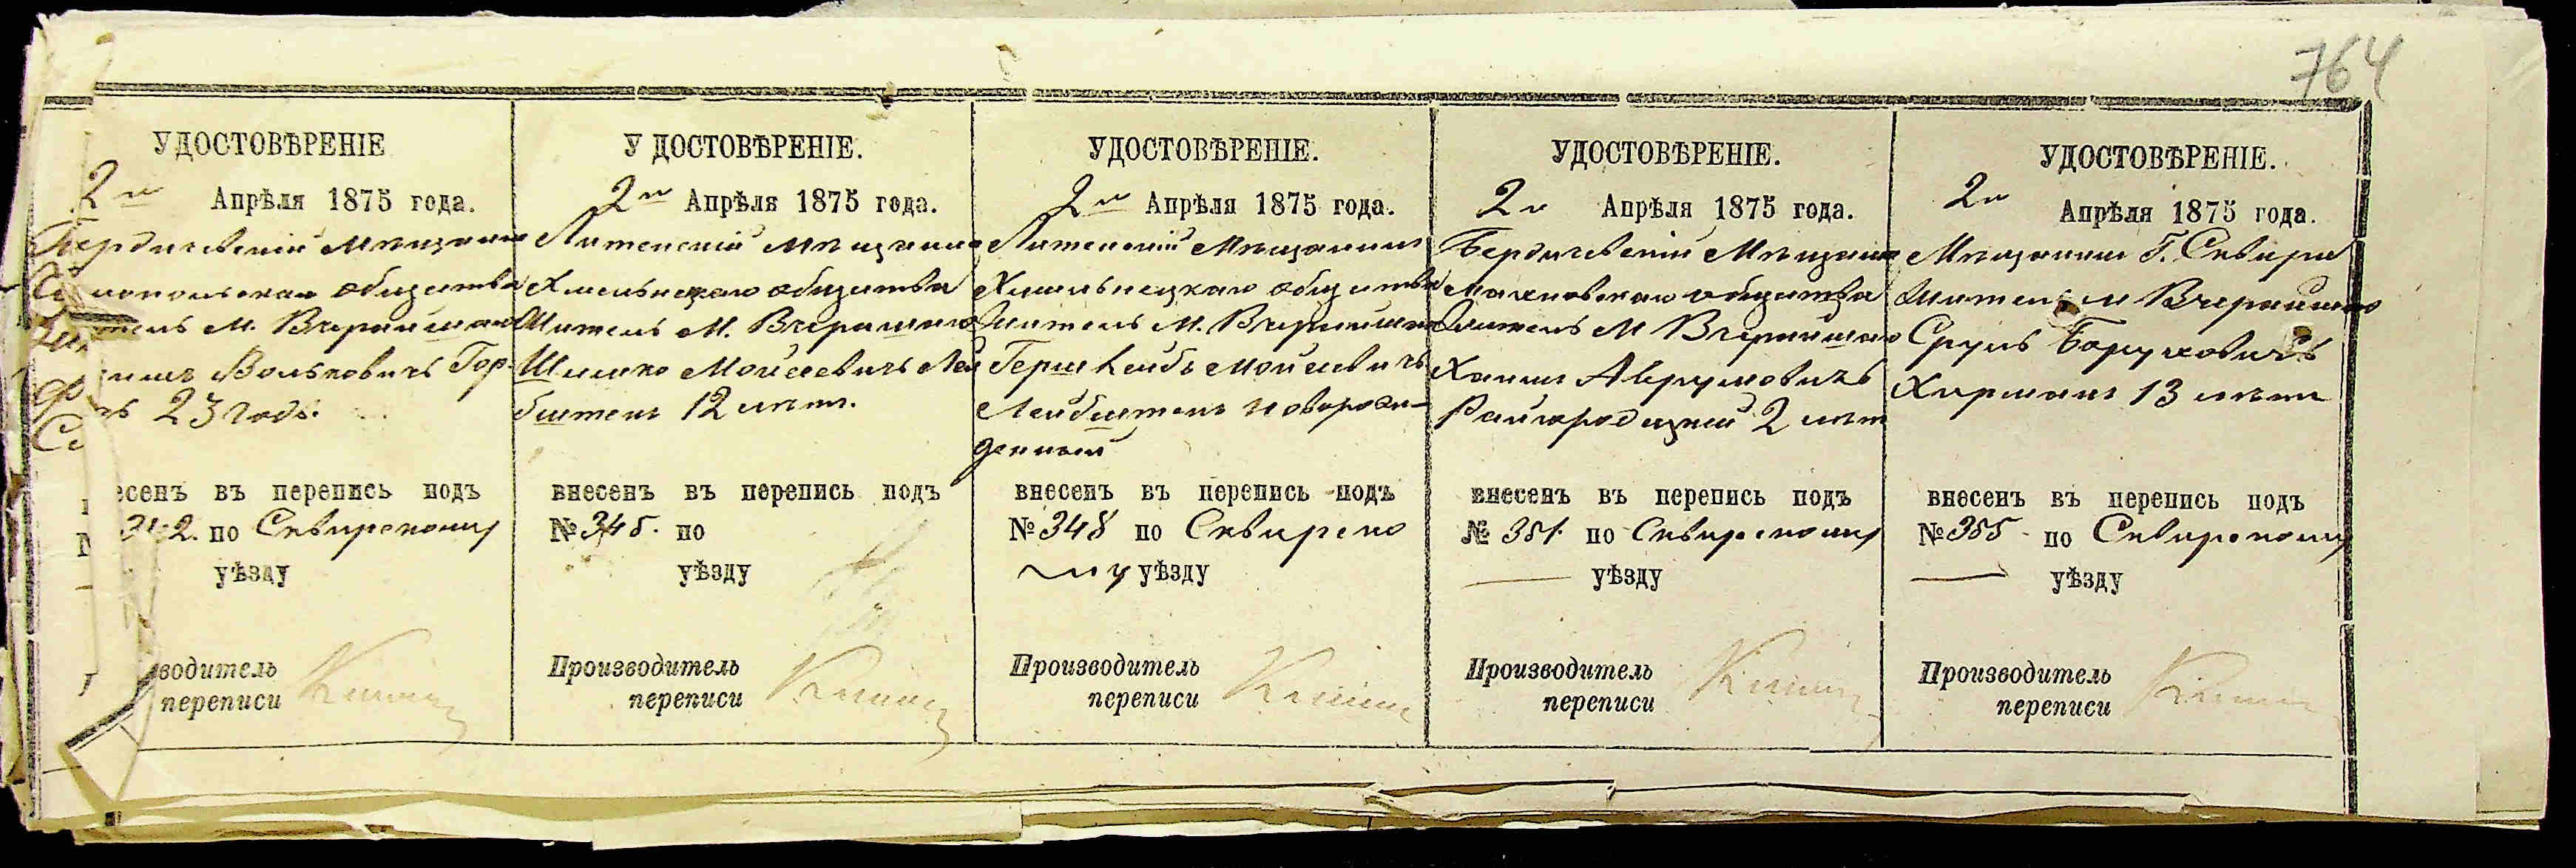 764
УДОСТОВѢРЕНІЕ
2го Апрѣля 1875 года.
Бердичевскій Мѣщанинъ
общества
М. Вчерайшаго
Вольковичъ Гор-
23 года.
есенъ въ перепись подъ
по Сквирскому
уѣзду
водитель
переписи
УДОСТОВѢРЕНІЕ.
2го Апрѣля 1875 года.
Литенскій мѣщанинъ
Хмельнецкаго общества
Житель М. Вчерашаго
Шлемко Мойсеевичъ Лей
бштенъ 12 лѣтъ.
внесенъ въ перепись подъ
№ 345. по
уѣзду
Производитель
переписи
УДОСТОВѢРЕНІЕ.
2го Апрѣля 1875 года.
Литенскій Мѣщанинъ
Хмельнецкаго общества
Житель М. Вчерайшаго
Герш Лейбъ Мойсеевичъ
Лейбштенъ новорож-
денный
внесенъ въ перепись подъ
№ 348 по Сквирско
му уѣзду
Производитель
переписи
УДОСТОВѢРЕНІЕ.
2го Апрѣля 1875 года.
Бердичевскій Мѣщанинъ
Махновскаго общества
Житель М Вчерайшаго
Хаимъ Аврумовичъ
Райгродецкій 2 лѣтъ
внесенъ въ перепись подъ
№ 351. по Сквирскому
уѣзду
Производитель
переписи
УДОСТОВѢРЕНІЕ.
2го Апрѣля 1875 года.
Мѣщанинъ Г. Сквиры
Житель М Вчерайшаго
Сруль Боруховичъ
Хирманъ 13 лѣтъ
внесенъ въ перепись подъ
№ 355 по Сквирскому
уѣзду
Производитель
переписи